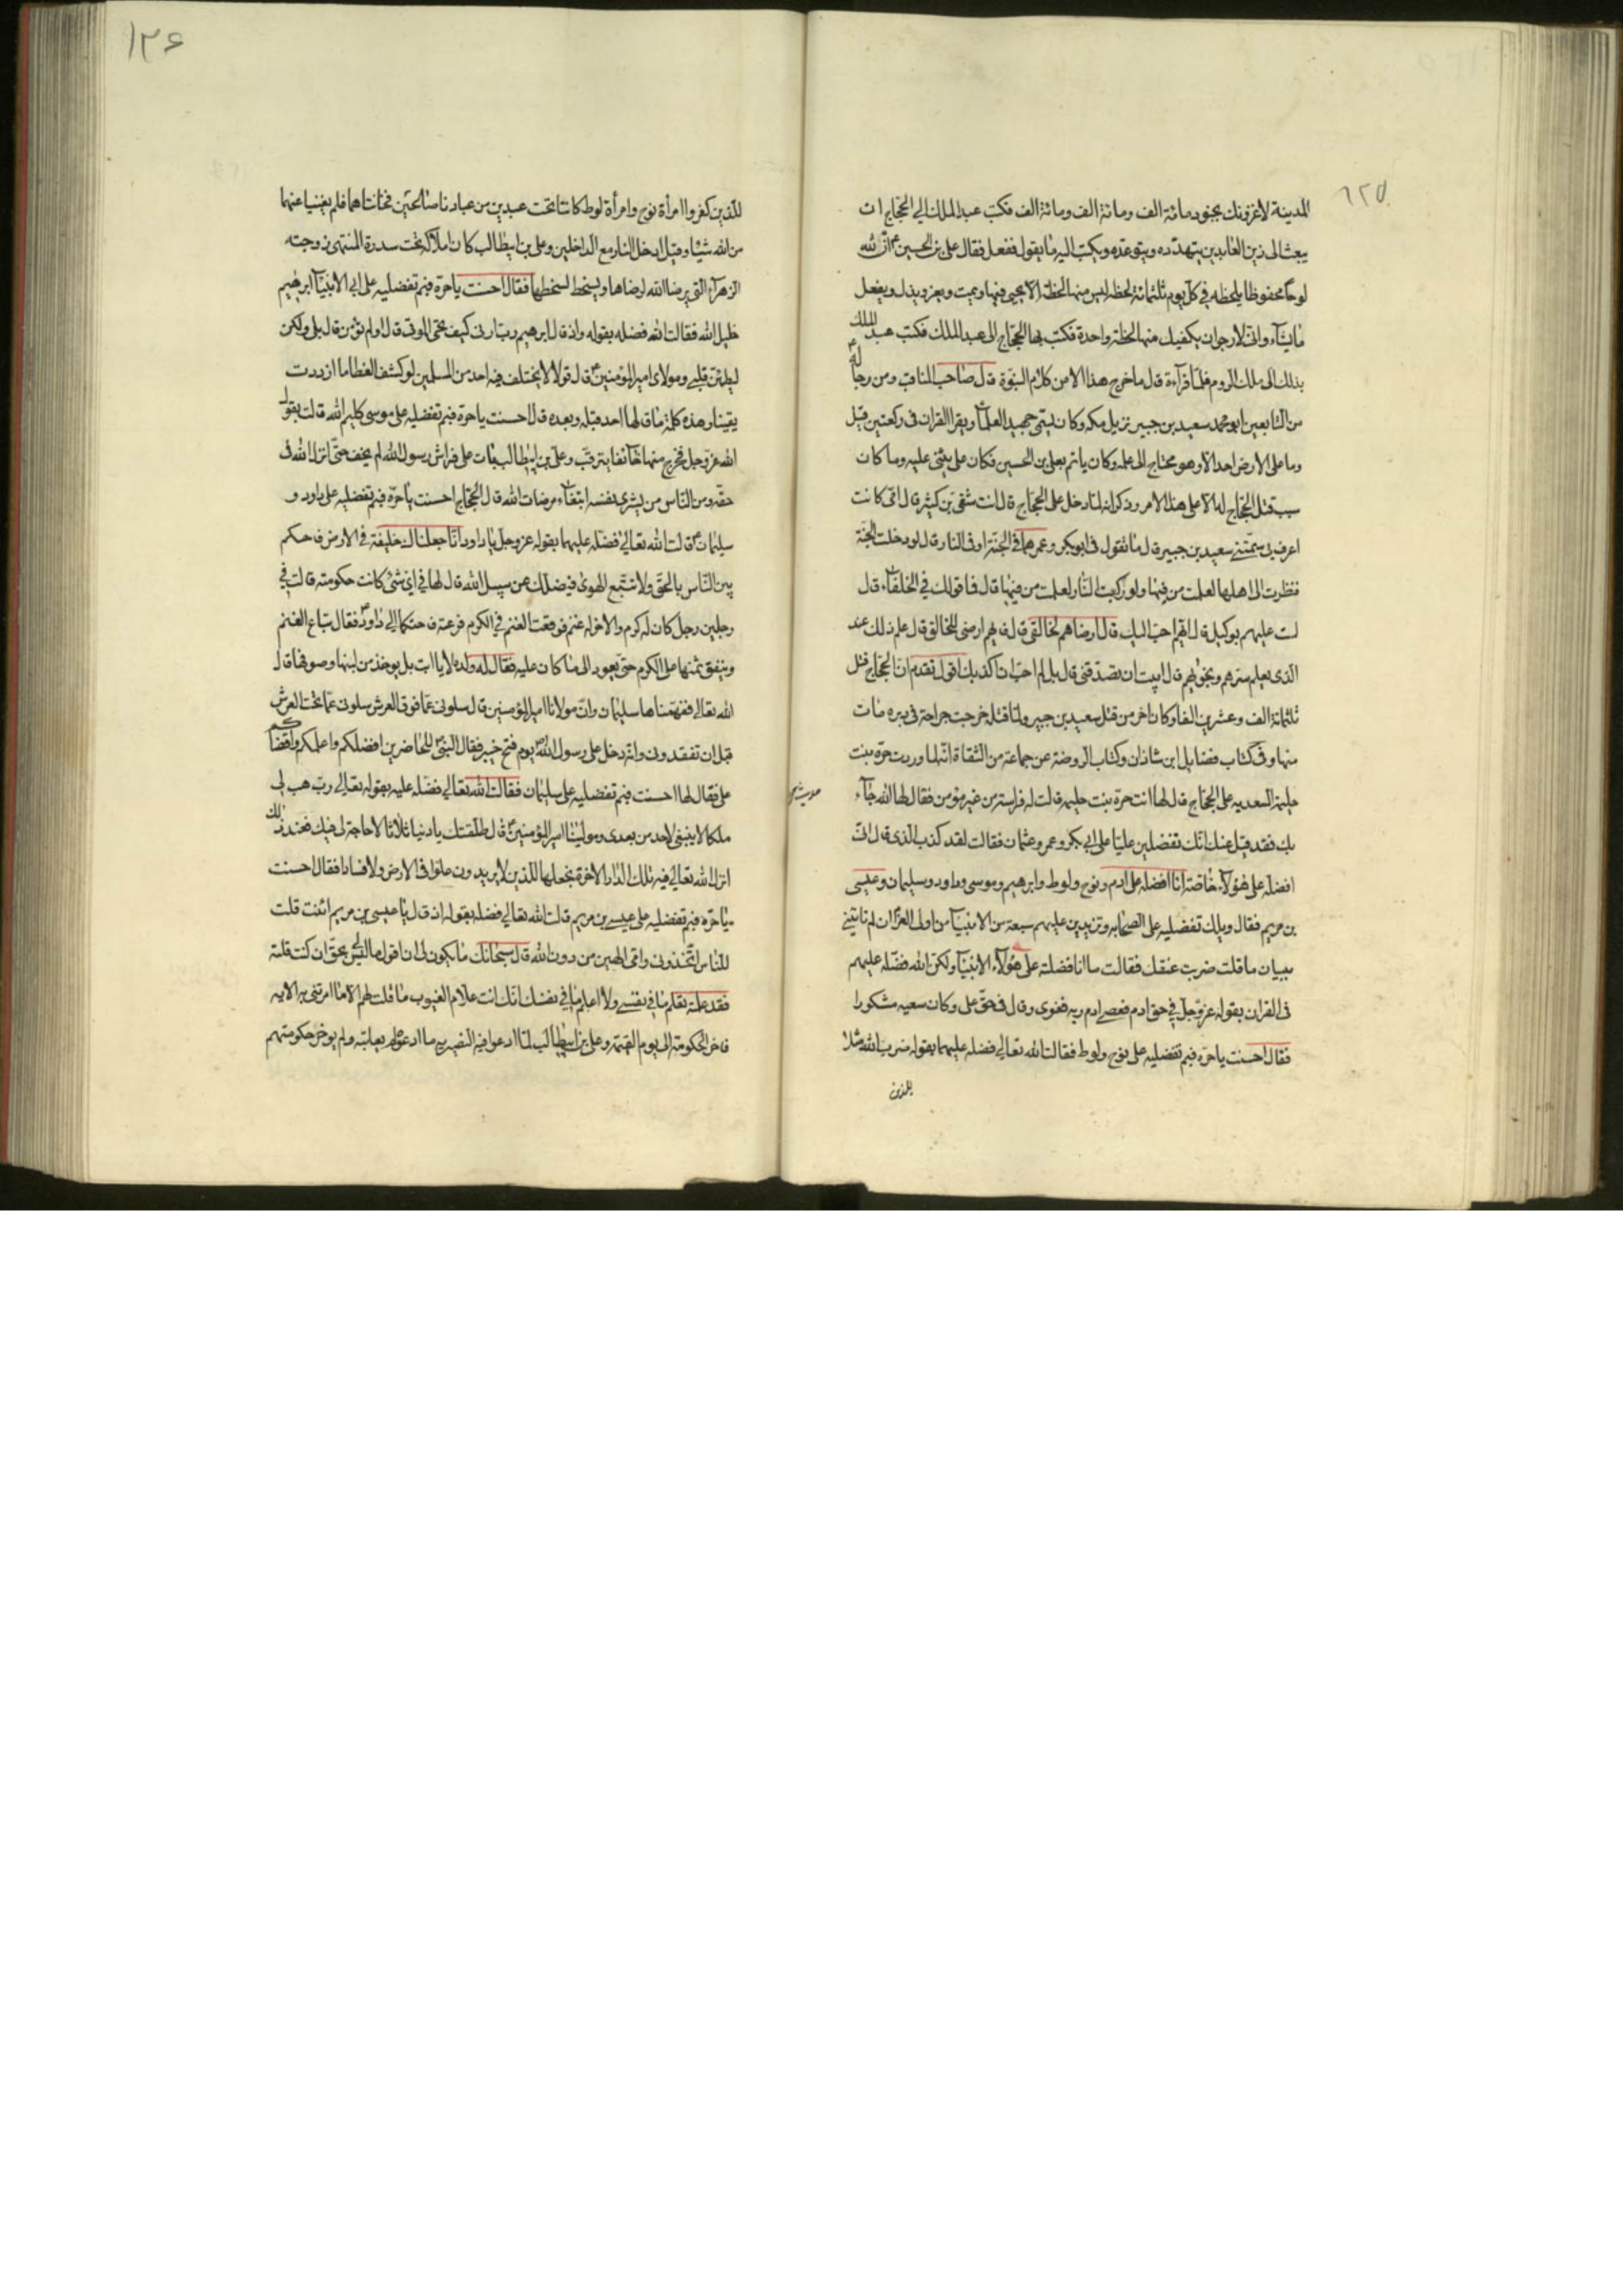 ١٢٥
المدينة لاغزونك بجنود مائة الف ومائة الف ومائة الف فكتب عبد الملك الى الحجاج ان
يبعث الى زين العابدين يتهدده ويتوعده ويكتب اليه ما يقول ففعل فقال علي بن الحسين ع ان لله
لوحا محفوظا يلحظه في كل يوم ثلثمائة لحظه ليس منها لحظة الا يحيى فيها ويميت ويعز ويذل ويفعل
ما يشآء وانى لارجو ان يكفيك منها لحظة واحدة فكتب بها الحجاج الى عبد الملك فكتب عبد الملك
بذلك الى ملك الروم فلما قرآءه قال ما خرج هذا الا من كلام النبوة قال صاحب المناقب ومن رجاله ع
من التابعين ابو محمد سعيد بن جبير نزيل مكه وكان يسمى جهبيد العلمآء ويقرا القران فى ركعتين قيل
وما على الارض احد الا وهو محتاج الى علمه وكان ياتم بعلي بن الحسين فكان علي يثنى عليه وما كان
سبب قتل الحجاج له الا على هذا الامر وذكر انه لما دخل على الحجاج قال انت شقي بن كسير قال امى كانت
اعرف بى سمتنى سعيد بن جبير قال ما تقول فى ابوبكر وعمر هما فى الجنة او فى النار قال لو دخلت الجنة
فنظرت الى اهلها لعلمت من فيها ولو رايت النار لعلمت من فيها قال فما قولك في الخلفآء قال
لست عليهم بوكيل قال ايهم احب اليك قال ارضاهم لخالقى قال فايهم ارضى للخالق قال علم ذلك عند
الذى يعلم سرهم ونجواهم قال ابيت ان تصدقنى قال بل لم احب ان اكذبك اقول تقدم ان الحجاج قتل
ثلثمائة الف وعشرين الفا وكان اخر من قتل سعيد بن جبير ولما قتله خرجت جراحة فى يده مات
منها وفى كتاب فضايل ابن شاذان وكتاب الروضة عن جماعة من الثقاة انه لما وردت حرة بنت
حليمة السعديه على الحجاج قال لها انت حرة بنت حليمة قالت له فراسة من غير مؤمن فقال لها الله جآء
بك فقد قيل عنك انك تفضلين عليا على ابي بكر وعمر وعثمان فقالت لقد كذب الذى قال انى
افضله على هؤلآء خاصة انا افضله على ادم ونوح ولوط وابرهيم وموسى وداود وسليمان وعيسى
بن مريم فقال ويلك تفضليه على الصحابه وتزيدين عليهم سبعة من الانبيآء من اولى العزم ان لم تاتينى
ببيان ما قلت ضربت عنقك فقالت ما انا فضلته على هؤلآء الانبيآء ولكن الله فضله عليهم
فى القران بقوله عزوجل في حق ادم فعصى ادم ربه فغوى وقال فى حق على وكان سعيه مشكورا
فقال احسنت يا حرة فبم تفضليه على نوح ولوط فقالت الله تعالى فضله عليهما بقوله ضرب الله مثلا
للذين
١٢٦
للذين كفروا امرأة نوح وامرأة لوط كانتا تحت عبدين من عبادنا صالحين فخانتاهما فلم يغنيا عنهما
من الله شيئا وقيل ادخلا النار مع الداخلين وعلي بن ابيطالب كان املاكه تحت سدرة المنتهى زوجته
الزهرآء التى يرضا الله لرضاها ويسخط لسخطها فقال احسنت يا حرة فبم تفضليه على ابي الانبيآء ابرهيم
خليل الله فقالت الله فضله بقوله واذ قال ابرهيم رب ارنى كيف تحي الموتى قال اولم تؤمن قال بلى ولكن
ليطمئن قلبى ومولاى امير المؤمنين ع قال قولا لا يختلف فيه احد من المسلمين لو كشف الغطا ما ازددت
يقينا وهذه كلمة ما قالها احد قبله وبعده قال احسنت يا حرة فبم تفضليه على موسى كليم الله قالت بقول
الله عزوجل فخرج منها خائفا يترقب وعلي بن ابيطالب بات على فراش رسول الله لم يخف حتى انزل الله فى
حقه ومن الناس من يشرى نفسه ابتغآء مرضات الله قال الحجاج احسنت يا حرة فبم تفضليه على داود و
سليمان ع قالت الله تعالى فضله عليهما بقوله عزوجل يا داود انا جعلناك خليفة فى الارض فاحكم
بين الناس بالحق ولا تتبع الهوى فيضلك عن سبيل الله قال لها في اى شئ كانت حكومته قالت في
رجلين رجل كان له كرم والاخر له غنم فوقعت الغنم في الكرم فرعته فاحتكما الى داود ع فقال تباع الغنم
وينفق ثمنها على الكرم حتى يعود الى ما كان عليه فقال له ولده لا يا ابت بل يوخذ من لبنها وصوفها قال
الله تعالى ففهمناها سليمان وان مولانا امير المؤمنين قال سلونى عما فوق العرش سلونى عما تحت العرش
قبل ان تفقدونى وانه دخل على رسول الله ص يوم فتح خيبر فقال النبى ص للحاضرين افضلكم واعلمكم واقضاكم
على فقال لها احسنت فبم تفضليه على سليمان فقالت الله تعالى فضله عليه بقوله تعالى رب هب لى
ملكا لا ينبغى لاحد من بعدى ومولينا امير المؤمنين ع قال طلقتك يا دنيا ثلاثا لا حاجة لى فيك فعند ذلك
انزل الله تعالى فيه تلك الدار الاخرة نجعلها للذين لا يريدون علوا فى الارض ولا فسادا فقال احسنت
يا حرة فبم تفضليه على عيسى بن مريم قالت الله تعالى فضله بقوله اذ قال يا عيسى بن مريم ائنت قلت
للناس اتخذونى وامى الهين من دون الله قال سبحانك ما يكون لى ان اقول ما ليس لي بحق ان كنت قلته
فقد علمته تعلم ما في نفسى ولا اعلم ما في نفسك انك انت علام الغيوب ما قلت لهم الا ما امرتنى به الايه
فاخر الحكومة الى يوم القيمة وعلي بن ابيطالب لما ادعوا فيه النصيريه ما ادعوه ولم يوخر حكومتهم